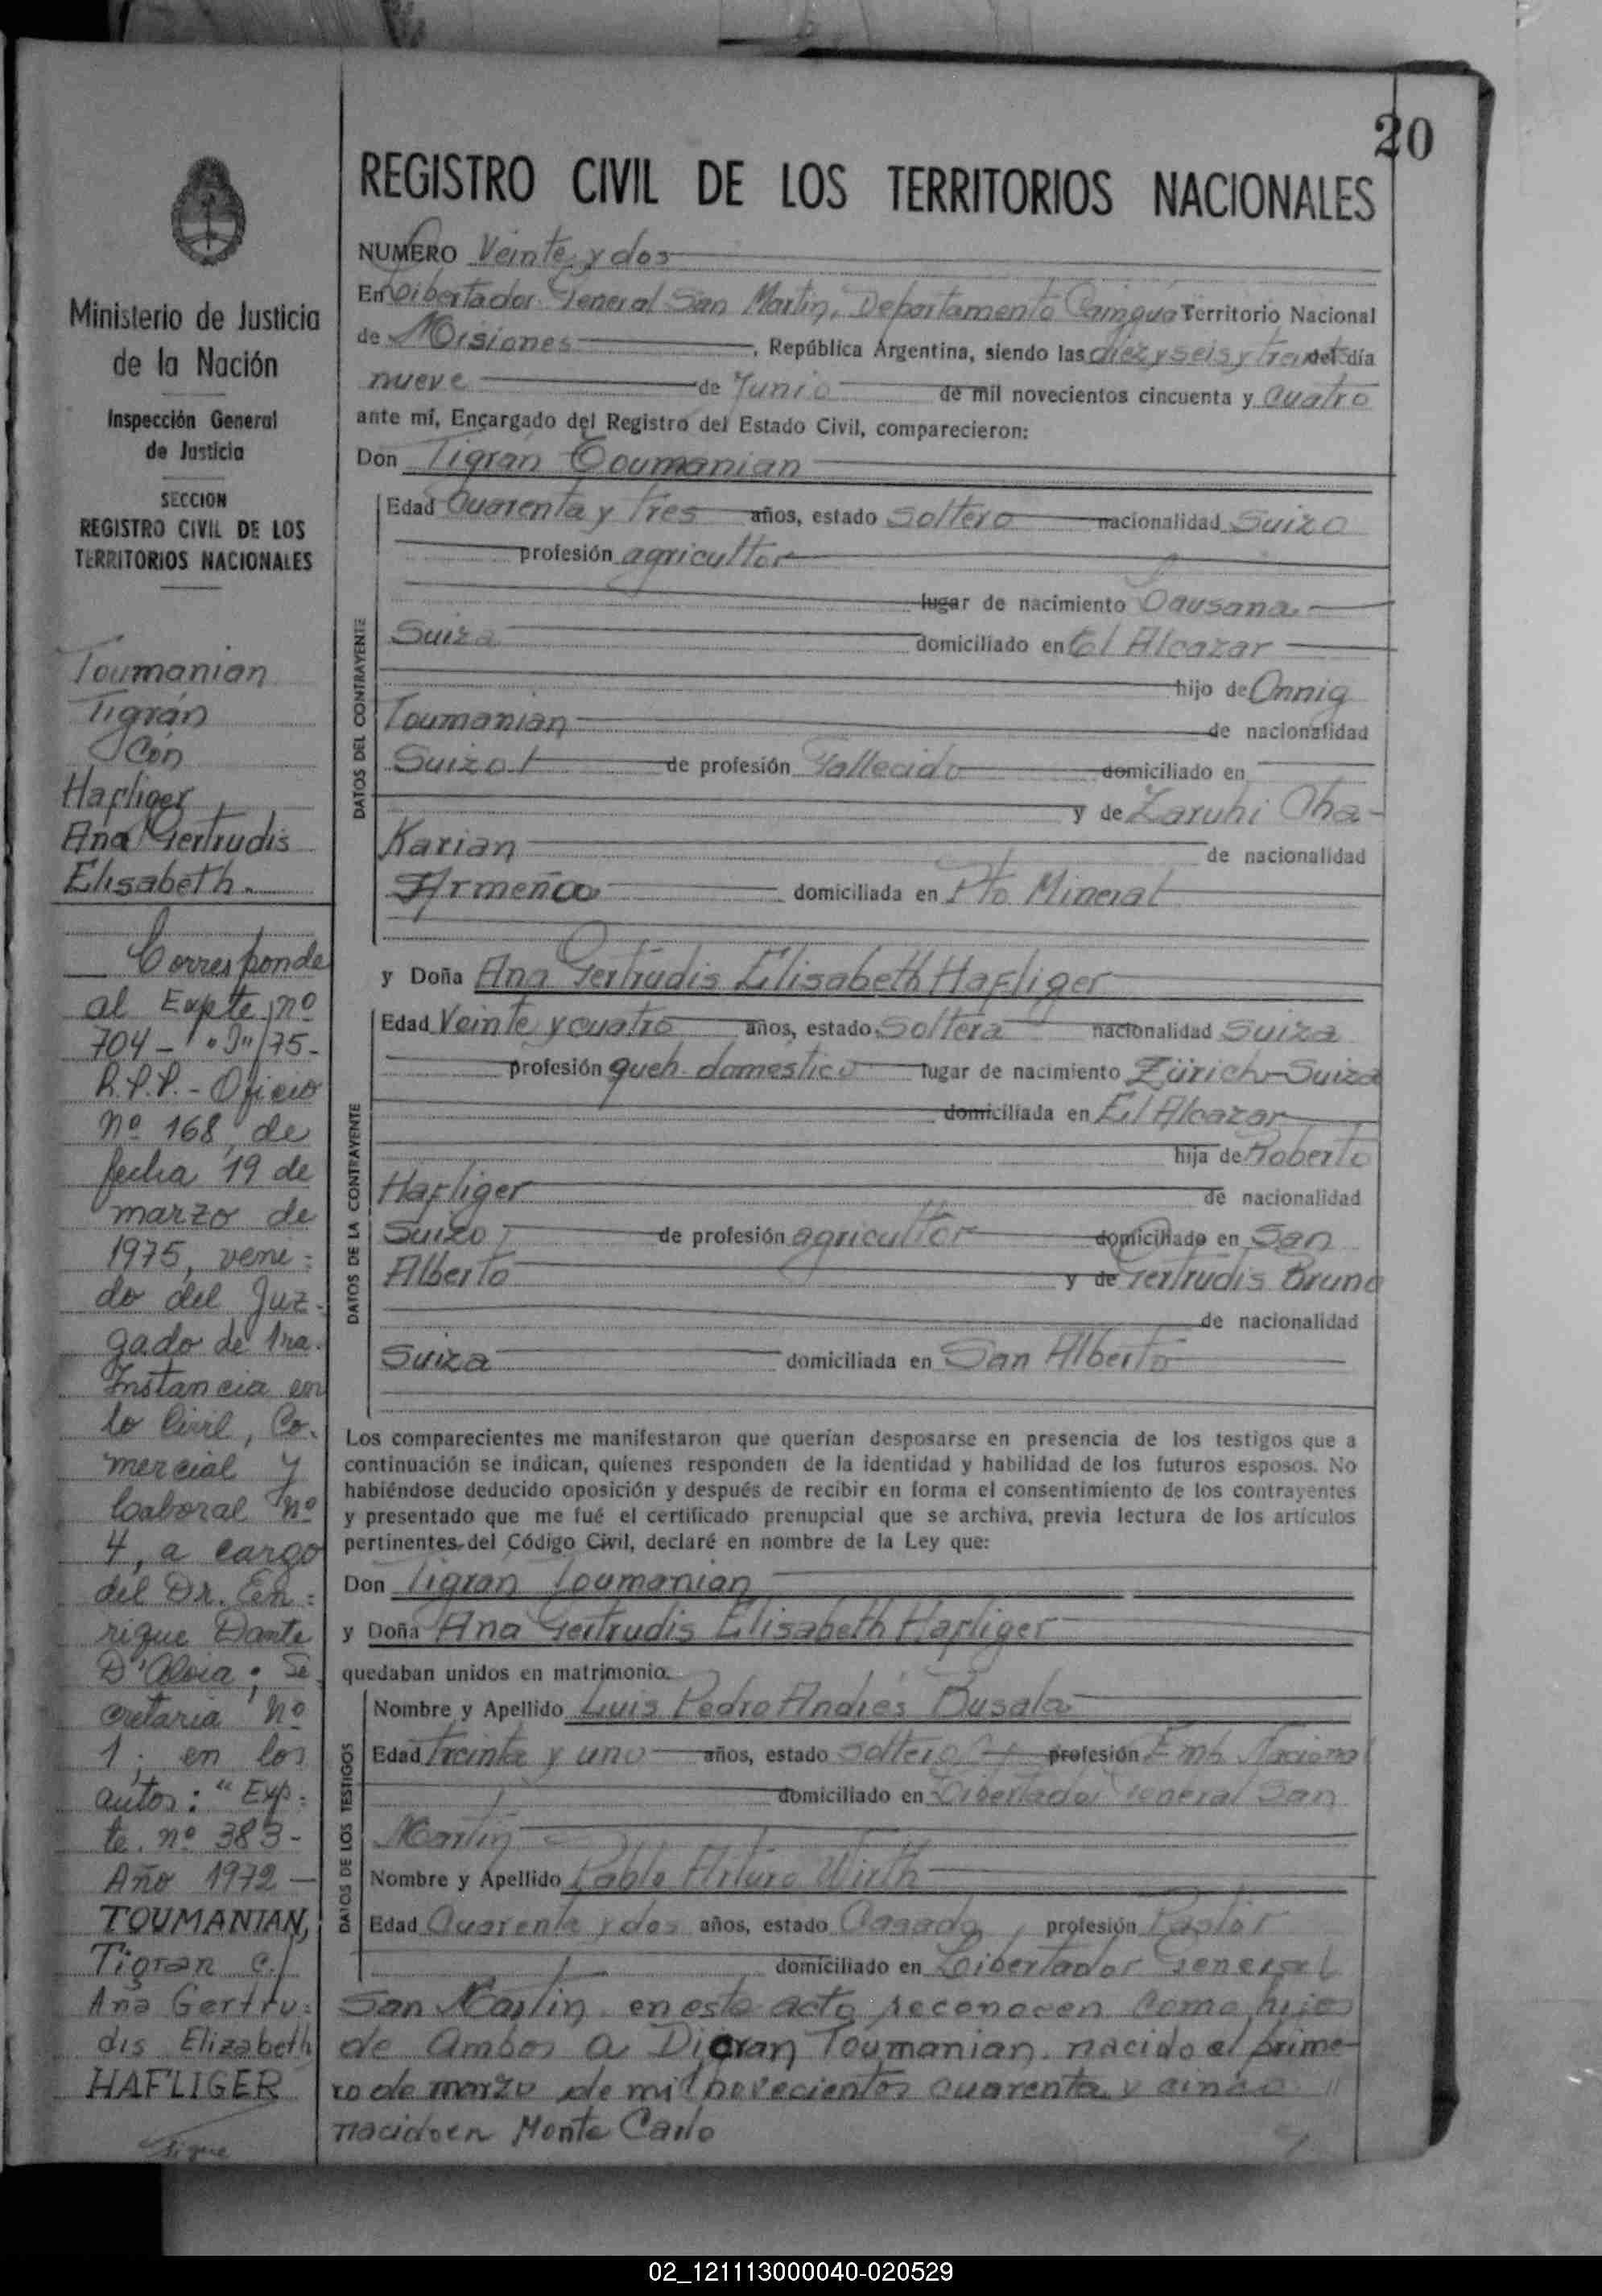 20
REGISTRO CIVIL DE LOS TERRITORIOS NACIONALES
Ministerio de Justicia
de la Nación
Inspección General
de Justicia
SECCION
REGISTRO CIVIL DE LOS
TERRITORIOS NACIONALES
Toumanian
Tigrán
Con
Hafliger
Ana Gertrudis
Elisabeth.
Corresponde
al Expte, nº
704-"J"/75-
R.P.P.- Oficio
nº 168, de
fecha 19 de
marzo de
1975, veni=
do del Juz-
gado de 1ra.
Instancia en
lo Civil, Co-
mercial y
Laboral nº
4, a cargo
del Dr. En=
rique Dante
D'Aloia; Se
cretaria nº
1; en los
autos: "Exp=
te. nº 383-
Año 1972 —
TOUMANIAN,
Tigran c/
Ana Gertru=
dis Elizabeth
HAFLIGER
Sigue
NUMERO Veinte y dos
En Libertador General San Martin, Departamento Cainguá Territorio Nacional
de Misiones, República Argentina, siendo las diez y seis y treinta del día
nueve de Junio de mil novecientos cincuenta y cuatro
ante mí, Encargado del Registro del Estado Civil, comparecieron:
Don Tigrán Toumanian
DATOS DEL CONTRAYENTE
Edad Cuarenta y tres años, estado Soltero nacionalidad Suizo
profesión agricultor
lugar de nacimiento Lausana
Suiza domiciliado en El Alcazar
hijo de Onnig
Toumanian de nacionalidad
Suizo de profesión Fallecido domiciliado en
y de Zaruhi Cha-
Karian de nacionalidad
Armeña domiciliada en Pto. Mineral
y Doña Ana Gertrudis Elisabeth Hafliger
DATOS DE LA CONTRAYENTE
Edad Veinte y cuatro años, estado Soltera nacionalidad Suiza
profesión queh. domestico lugar de nacimiento Zürich-Suiza
domiciliada en El Alcazar
hija de Roberto
Hafliger de nacionalidad
Suizo de profesión agricultor domiciliado en San
Alberto y de Gertrudis Bruna
de nacionalidad
Suiza domiciliada en San Alberto
Los comparecientes me manifestaron que querían desposarse en presencia de los testigos que a
continuación se indican, quienes responden de la identidad y habilidad de los futuros esposos. No
habiéndose deducido oposición y después de recibir en forma el consentimiento de los contrayentes
y presentado que me fué el certificado prenupcial que se archiva, previa lectura de los artículos
pertinentes del Código Civil, declaré en nombre de la Ley que:
Don Tigran Toumanian
y Doña Ana Gertrudis Elisabeth Hafliger
quedaban unidos en matrimonio.
DATOS DE LOS TESTIGOS
Nombre y Apellido Luis Pedro Andres Busala
Edad treinta y uno años, estado soltero profesión Emp. Nacional
domiciliado en Libertador General San
Martin
Nombre y Apellido Pablo Arturo Wirth
Edad Cuarenta y dos años, estado Casado, profesión Pastor
domiciliado en Libertador General
San Martin. en este acto reconocen como hijos
de ambos a Digran Toumanian. nacido el prime-
ro de marzo de mil novecientos cuarenta y cinco
nacido en Monte Carlo
02_121113000040-020529